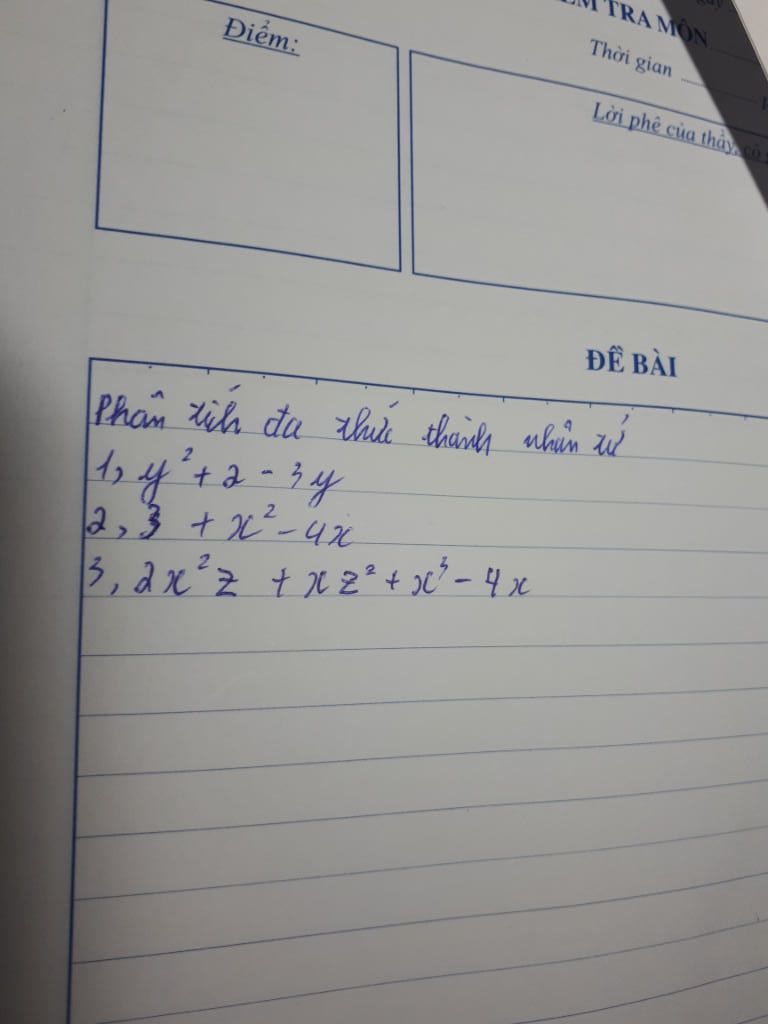 TRA MÔN
Điểm:
Thời gian
Lời phê của thầy, cô
ĐỀ BÀI
Phân tích đa thức thành nhân tử
1, y² + 2 - 3y
2, 3 + x² - 4x
3, 2x²z + xz² + x³ - 4x